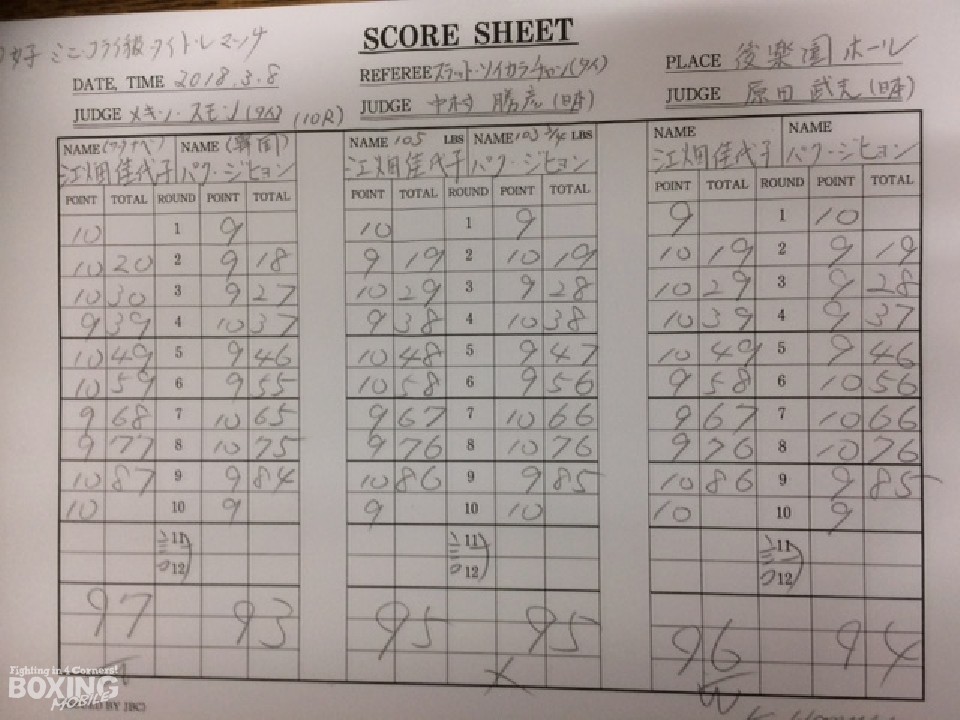 SCORE SHEET
女子 ミニ・フライ級 タイトルマッチ
DATE, TIME 2018.3.8
REFEREE (タイ)
PLACE 後楽園ホール
JUDGE (タイ) (10R)
JUDGE 中村 勝彦 (日本)
JUDGE 原田 武夫 (日本)
NAME NAME (韓国) NAME 105 LBS NAME 103 3/4 LBS NAME NAME
江畑佳代子 パク・ジヒョン 江畑佳代子 パク・ジヒョン 江畑佳代子 パク・ジヒョン
POINT TOTAL ROUND POINT TOTAL POINT TOTAL ROUND POINT TOTAL POINT TOTAL ROUND POINT TOTAL
10 1 9 10 1 9 9 1 10
10 20 2 9 18 9 19 2 10 19 10 19 2 9 19
10 30 3 9 27 10 29 3 9 28 10 29 3 9 28
9 39 4 10 37 9 38 4 10 38 10 39 4 9 37
10 49 5 9 46 10 48 5 9 47 10 49 5 9 46
10 59 6 9 55 10 58 6 9 56 9 58 6 10 56
9 68 7 10 65 9 67 7 10 66 9 67 7 10 66
9 77 8 10 75 9 76 8 10 76 9 76 8 10 76
10 87 9 9 84 10 86 9 9 85 10 86 9 9 85
10 10 9 9 10 10 10 10 9
11 11 11
12 12 12
97 93 95 95 96 94
W
Fighting in 4 Corners!
BOXING
MOBILE
BY JBC)